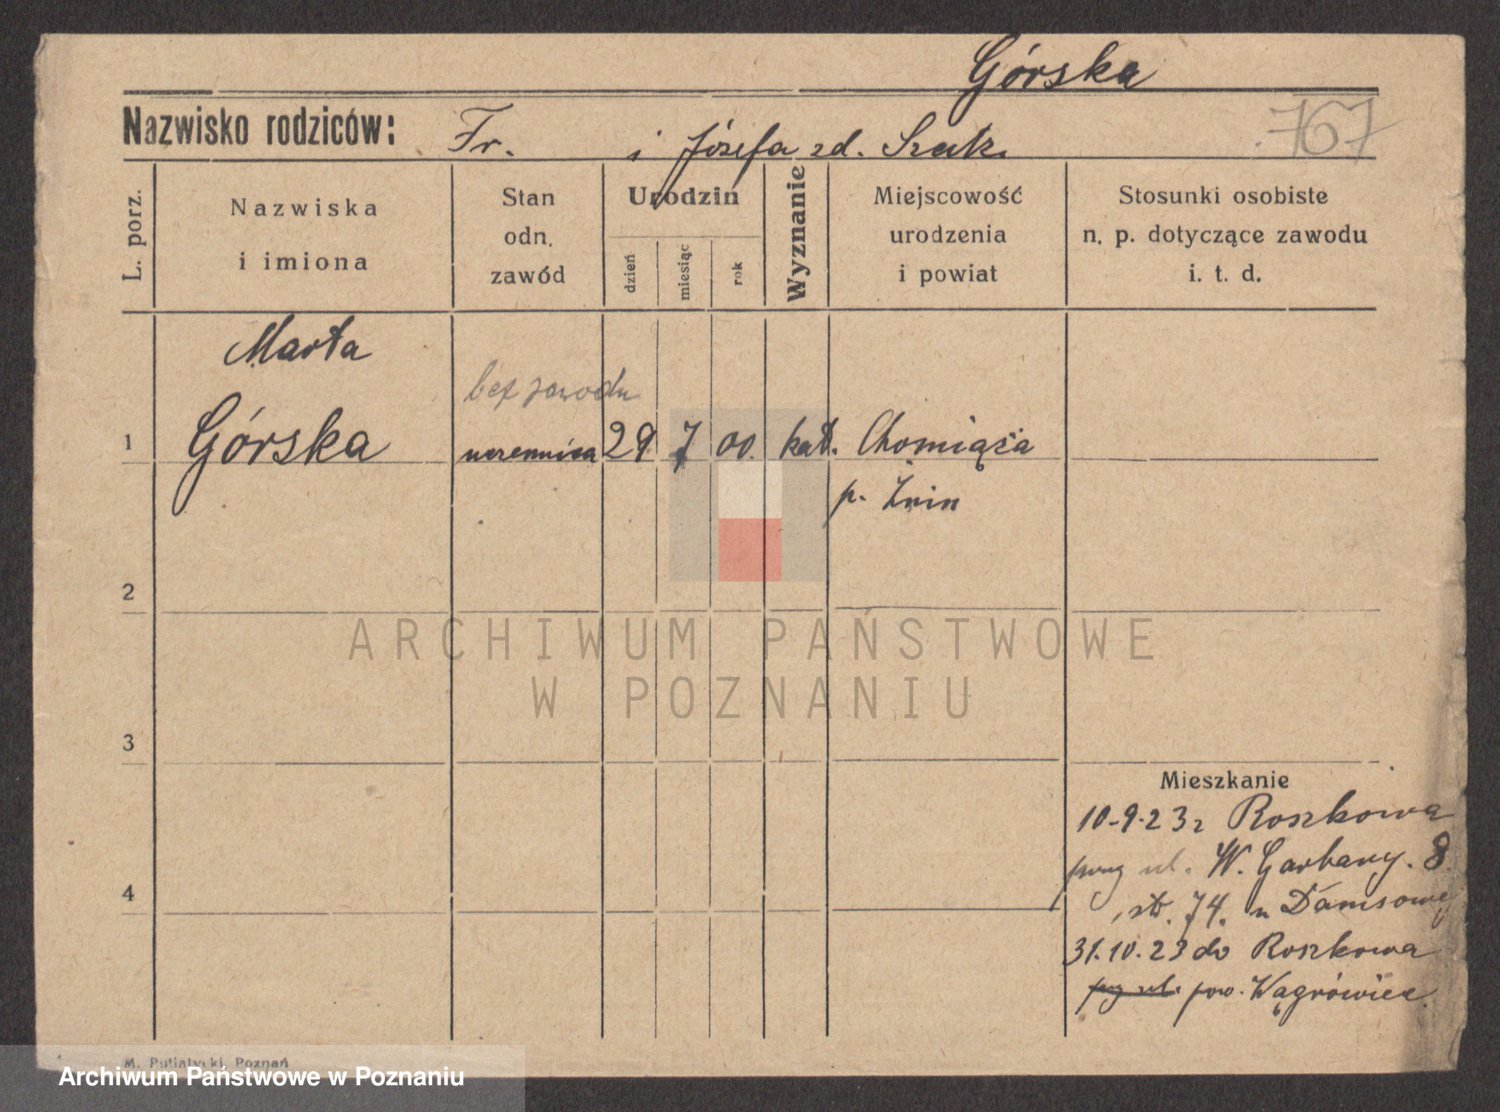 Górska
Nazwisko rodziców: Fr. i Józefa zd. Szuk.
767
L. porz.
Nazwiska
i imiona
Stan
odn.
zawód
Urodzin
dzień
miesiąc
rok
Wyznanie
Miejscowość
urodzenia
i powiat
Stosunki osobiste
n. p. dotyczące zawodu
i. t. d.
Marta
bez zawodu
1 Górska uczennica 29 7 00. kat. Chomiąża
p. Żnin
2
ARCHIWUM PAŃSTWOWE
W POZNANIU
3
Mieszkanie
10-9-23 z Roszkowa
przy ul. W. Garbary. 8.
4
74. u
31.10.23 do Roszkowa
przy ul. pow. Wągrowiec.
M. Putiatycki, Poznań
Archiwum Państwowe w Poznaniu